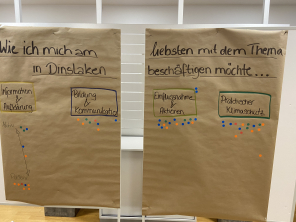 Wie ich mich am liebsten mit dem Thema
in Dinslaken beschäftigen möchte...
Information
&
Aufklärung
Bildung
&
Kommunikation
Einflussnahme
&
Aktionen
Praktischer
Klimaschutz